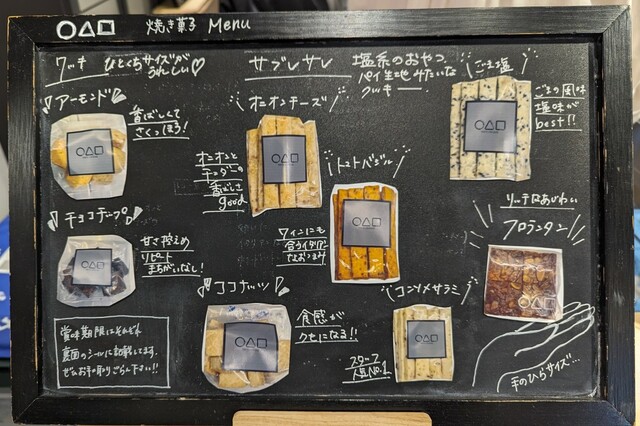 ○△□ 焼き菓子 Menu
クッキー ひとくちサイズが
うれしい♡
アーモンド
香ばしくて
さくっほろ!
チョコチップ
甘さ控えめ
リピート
まちがいなし!
ココナッツ
食感が
クセになる!!
賞味期限はそれぞれ
裏面のシールに記載してます。
ぜひお手に取りごらん下さい!!
サブレサレ
塩系のおやつ。
パイ生地みたいな
クッキー
オニオンチーズ
オニオンと
チェダーの
香ばしさ
good
トマトバジル
ワインにも
合うイタリアン
なおつまみ
コンソメサラミ
スタッフ
人気No.1
ごま塩
ごまの風味
塩味が
best!!
リッチなあじわい
フロランタン
手のひらサイズ…
○△□
○△□
○△□
○△□
○△□
○△□
○△□
○△□